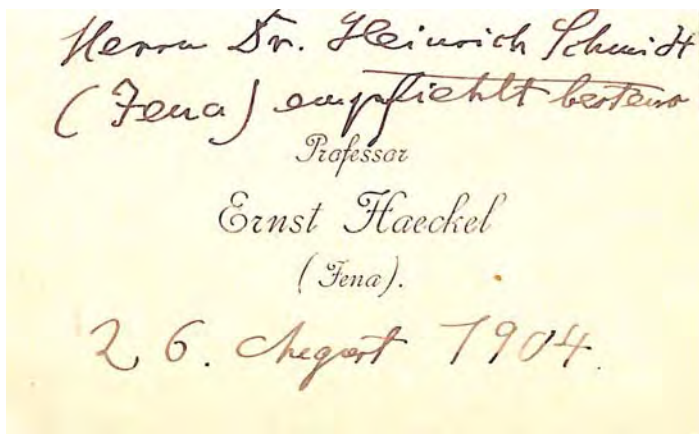 Herrn Dr. Heinrich Schmidt
(Jena) empfiehlt bestens
Professor
Ernst Haeckel
(Jena).
26. August 1904.